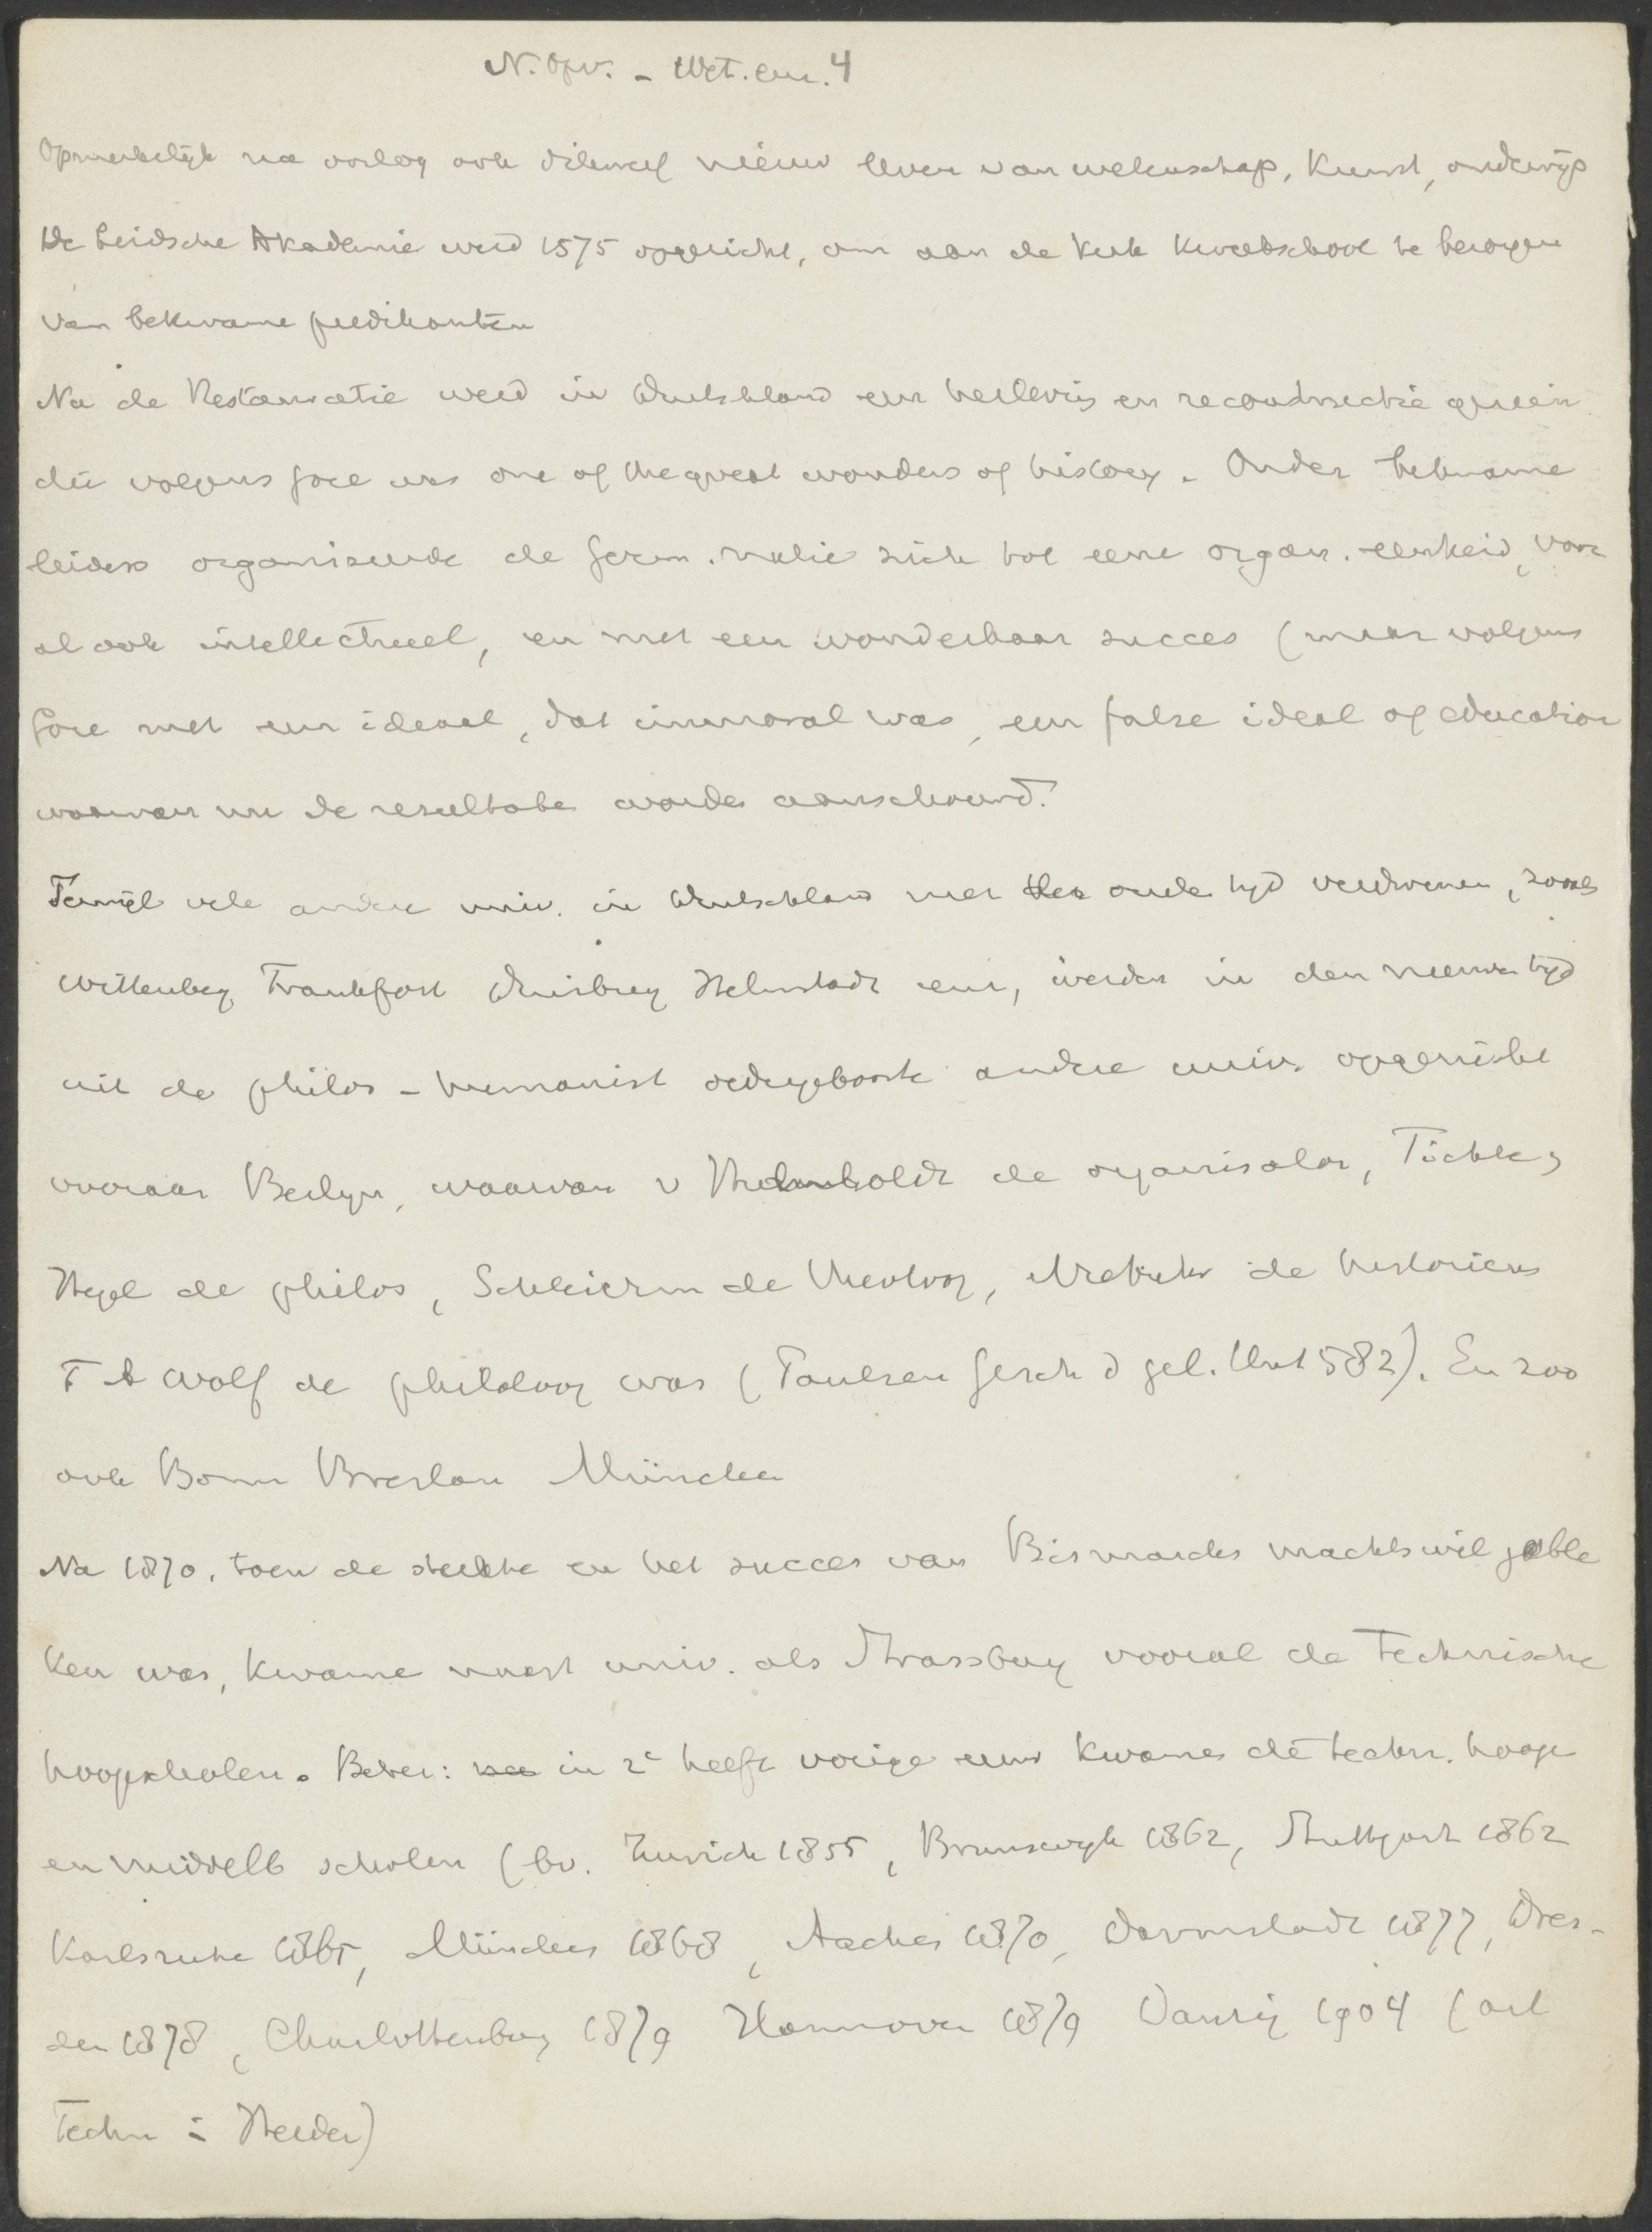 N. Opv. - Wet. enz. 4
Opmerkelijk na oorlog ook dikwerf nieuw leven van wetenschap, Kunst, onderwijs
De Leidsche Akademie werd 1575 opgericht, om aan de Kerk Kweekschool te bezorgen
van bekwame predikanten
Na de Restauratie werd in Duitschland een herleving en reconstructie gezien
die volgens Gore was one of the great wonders of history. Onder bekwame
leiders organiseerde de Germ. natie zich tot eene organ. eenheid, voor
al ook intellectueel, en met een wonderbaar succes (maar volgens
Gore met een ideaal, dat immoral was, een false ideal of education
waarvan nu de resultaten worden aanschouwd.
Terwijl vele andere univ. in Duitschland met den ouden tijd verdwenen, zooals
Wittenberg, Frankfort Duisburg Helmstadt enz, werden in den nieuwen tijd
uit de philos - humanist wedergeboorte andere univ. opgericht
vooraan Berlijn, waarvan v Humboldt de organisator, Fichte,
Hegel de philos, Schleierm de theoloog, Niebuhr de historicus
F A Wolf de philoloog was (Paulsen Gesch d gel. Unt 582). En zoo
ook Bonn Breslau München
Na 1870, toen de sterkte en het succes van Bismarcks machtswil geble
ken was, kwamen naast univ. als Strassburg vooral de Technische
hoogescholen. Beter: in 2e helft vorige eeuw kwamen de techn. hooge
en middelb scholen (bv. Zurich 1855, Brunswijk 1862, Stuttgart 1862
Karlsruhe 1865, München 1868, Aachen 1870, Darmstadt 1877, Dres-
den 1878, Charlottenburg 1879 Hannover 1879 Danzig 1904 (art
Techn in Herder)